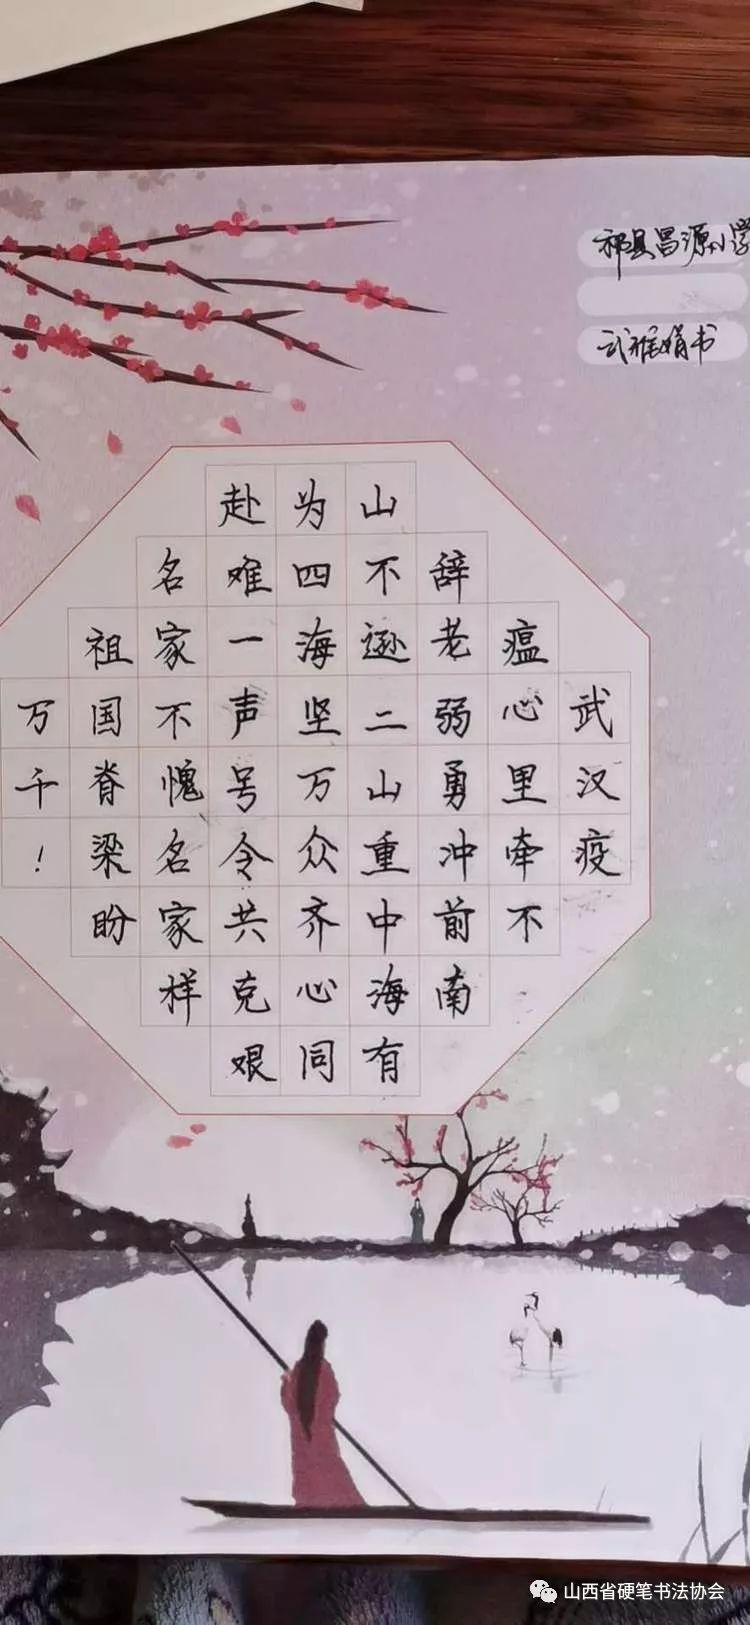 祁县昌源小学
武雅娟书
武汉疫
瘟心里牵不
辞老弱勇冲前南
山不逊二山重中海有
为四海坚万众齐心同
赴难一声号令共克艰
名家不愧名家样
祖国脊梁盼
万千！
山西省硬笔书法协会